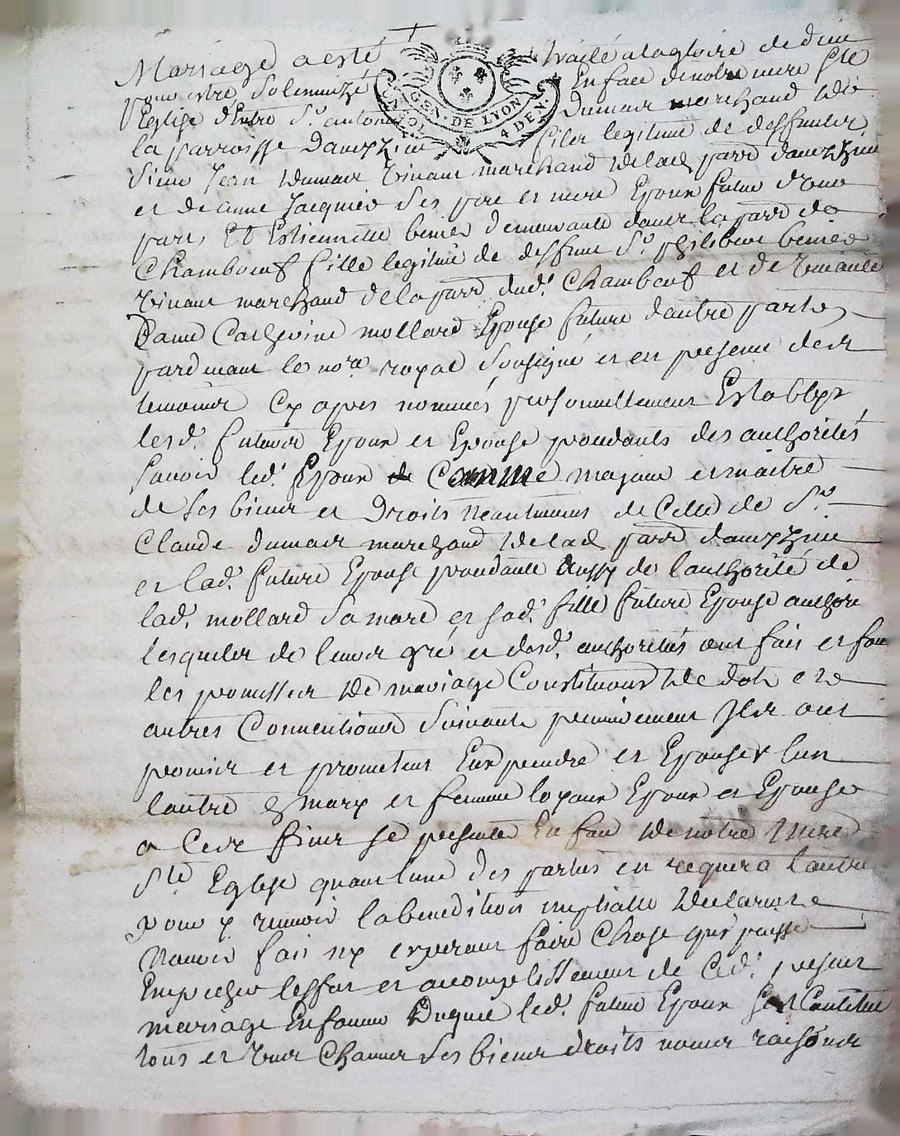 Mariage a esté traité a la gloire de dieu
pour estre solemnizé En face de notre mere ste
Eglise Entre Sr. antoine dumair marchand de
GEN. DE LYON
4 DEN.
la parroisse d'auezieu filer legitime de deffunter
sieur Jean dumair vivant marchand de lad. parr. dauezieu
et de anne Jacquier ses pere et mere Epoux futur d'une
part, Et Estiennette benier demeurante dans la parr. de
Chambœuf fille legitime de deffunt Sr. philibert benier
vivant marchand de la parr. dud. Chambœuf et de vivante
Dame Catherine mollard Epouse future d'autre parte
pardevant le nore. royal soussigné et en presence des
temoins cy apres nommés personnellement Establys
lesd. futurs Epoux et Epouse procedants des authorités
savoir led. Epoux Comme majeur et maitre
de ses biens et Droits neantmoins de Celle de Sr.
Claude dumair marchand de lad. parr. dauezieu
et lad. future Epouse procedante aussy de l'authorité de
lad. mollard sa mere et sad. fille future Epouse authori
lesqueles de leurs gré et desd. authorités ont fais et font
les promesses de mariage Constitutions de dote et
autres Conventions suivants premierement Ils ont
promis et promettent Eux prendre et Epouser l'un
l'autre a mary et femme loyaux Epoux et Epouse
a Ces fins se presenter En face de notre mere
Ste Eglise quant l'une des parties en requera l'autre
pour y recevoir la benediction nuptialle declarants
n'avoir fais ny esperant faire Chose qui puisse
Empecher l'effet et accomplissement de Ced. present
mariage En faveur Duquel led. futur Epoux s'est Constitué
tous et uns Chacuns ses biens droits noms raisons